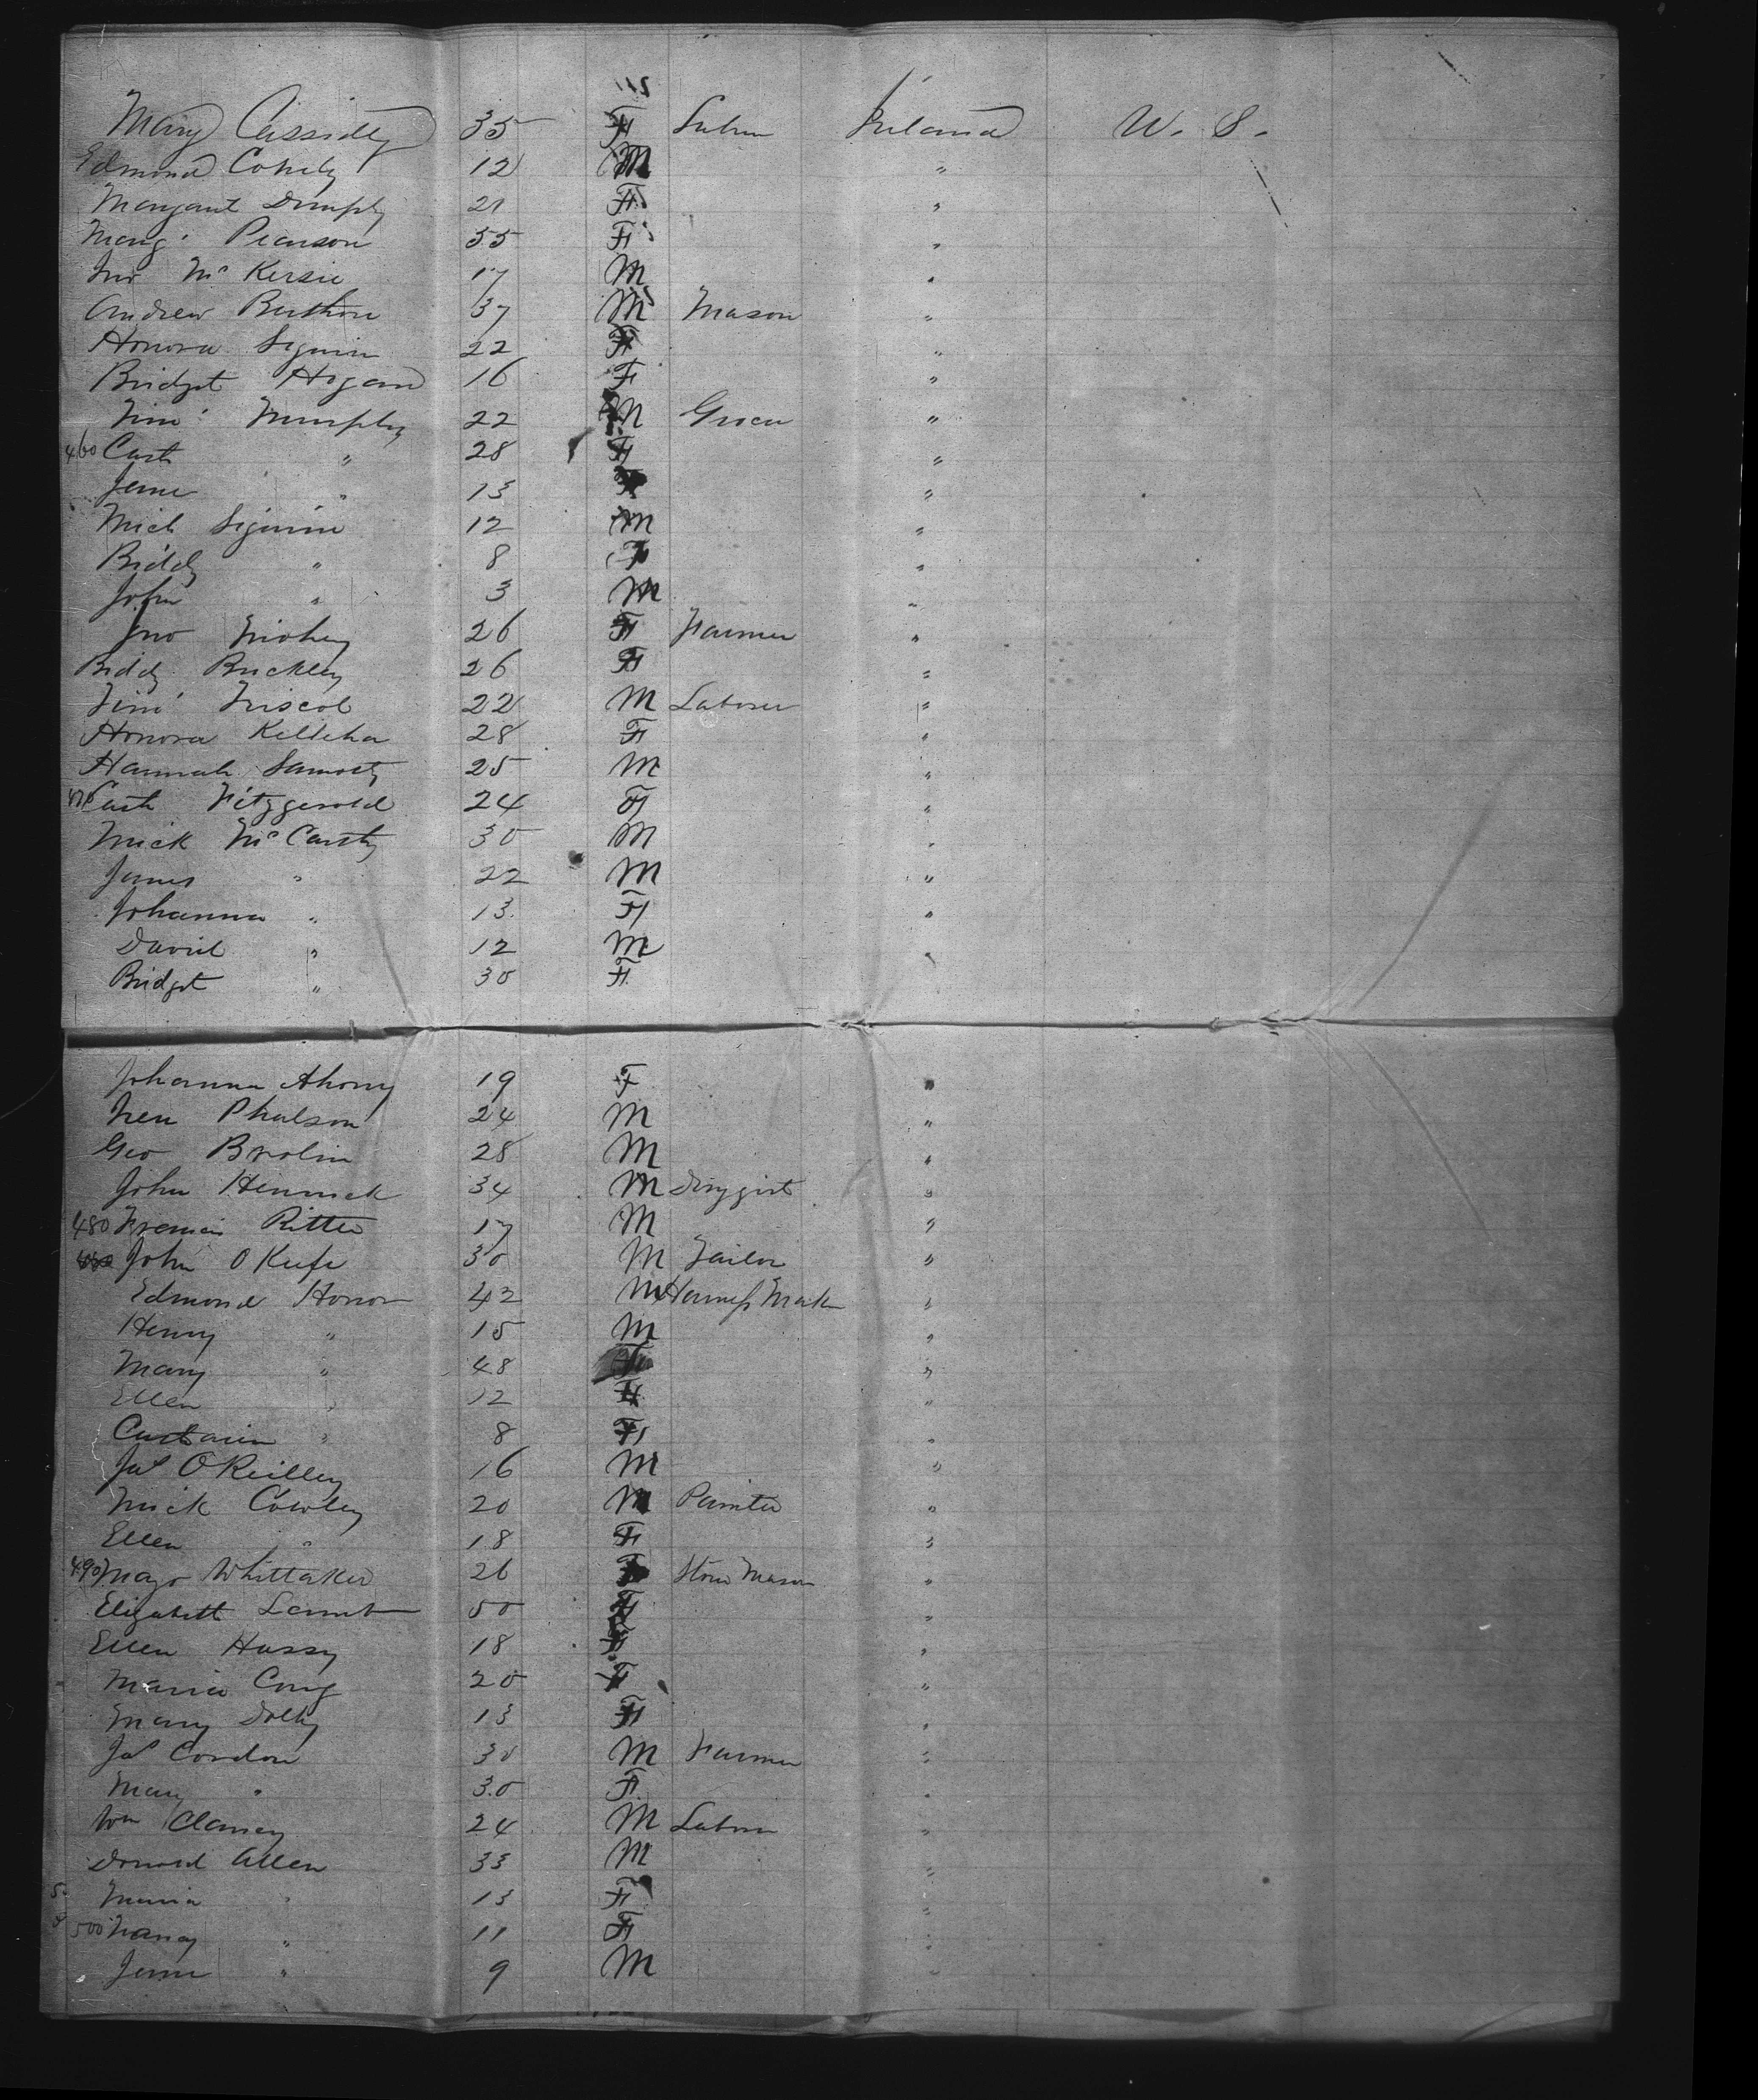 Mary Cassidy 35 F Labr Ireland U. S.
Edmond Cohely 12 M "
Margaret Dumphy 21 F "
Marg. Pearson 55 F "
Jno McKersie 17 M "
Andrew 37 M Mason "
Honora 22 F "
Bridget Hogan 16 F "
Tim Murphy 22 M Grocer "
460 Cath " 28 F "
Jerre " 13 "
Mich 12 M "
Biddy " 8 F "
John " 3 M "
Jno 26 F Farmer "
Biddy Buckley 26 F "
Tim Driscol 22 M Laborer "
Honora Kelleher 28 F "
Hannah 25 M "
470 Cath Fitzgerald 24 F "
Mick McCarty 30 M "
James " 22 M "
Johanna " 13 F "
David " 12 M "
Bridget " 30 F "
Johanna Ahony 19 F "
Phalson 24 M "
Geo Brolin 28 M "
John Hennick 34 M Druggist "
480 Francis Ritter 17 M "
480 John O Keefe 30 M Tailor "
Edmond Honor 42 M Harness Maker "
Henry " 15 M "
Mary " 48 F "
Ellen " 12 F "
" 8 F "
Jas O Reilley 16 M "
Mick Cowley 20 M Painter "
Ellen " 18 F "
490 Whittaker 26 F Stone Mason "
Elizabeth Lamb 50 F "
Ellen Hussy 18 F "
Maria 20 F "
Mary Dolky 13 F "
Jas Cordon 30 M Farmer "
Mary " 30 F "
Wm Clancy 24 M Labor "
Donald Allen 33 M "
Maria " 13 F "
500 Nancy " 11 F "
" 9 M "